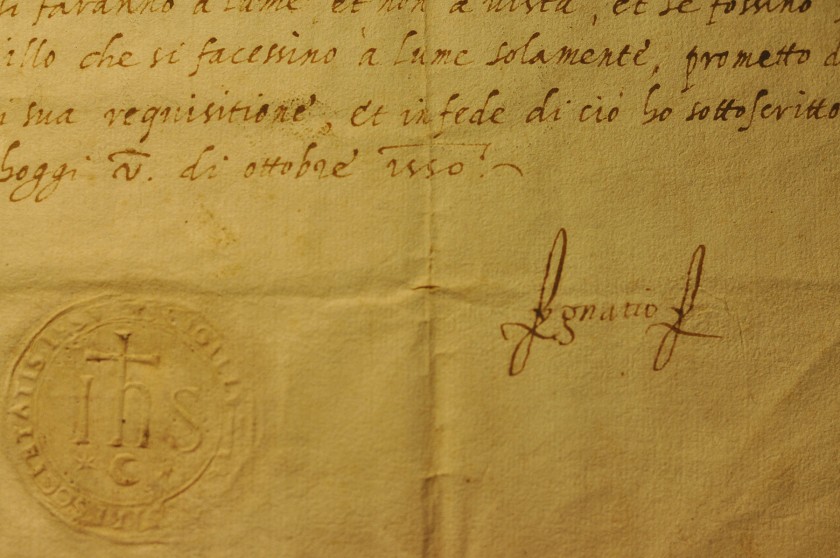 faranno à lume, et non à vista, et se fossino
illo che si facessino à lume solamente, prometto
sua requisitione, et in fede di ciò ho sottoscritto
hoggi v. di ottobre 1550.
Ignatio
IHS
SOCIETATIS